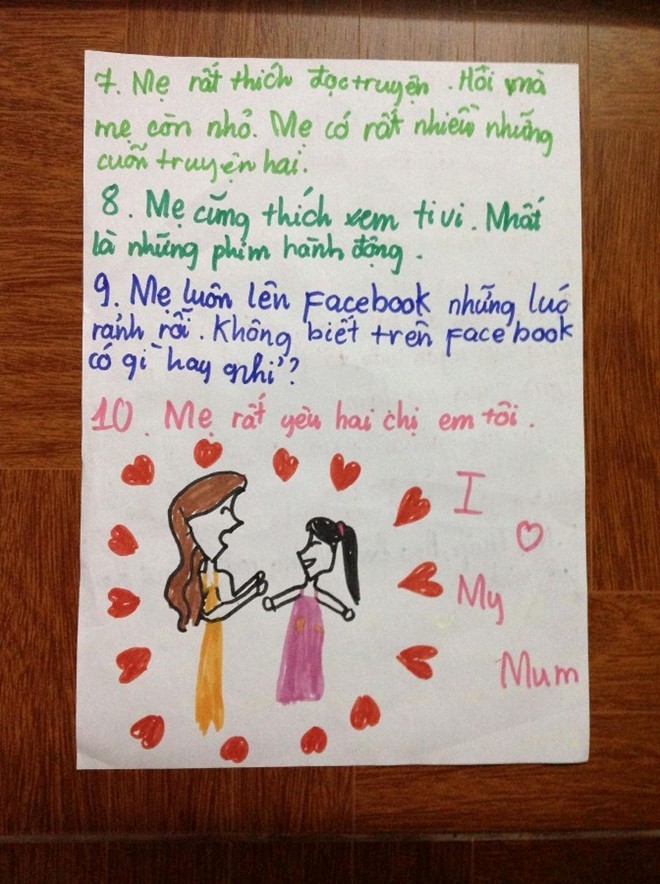 7. Mẹ rất thích đọc truyện. Hồi mà
mẹ còn nhỏ. Mẹ có rất nhiều những
cuốn truyện hai.
8. Mẹ cũng thích xem ti vi. Nhất
là những phim hành động.
9. Mẹ luôn lên Facebook những lúc
rảnh rỗi. Không biết trên Facebook
có gì hay nhỉ?
10. Mẹ rất yêu hai chị em tôi.
I
♡
My
Mum